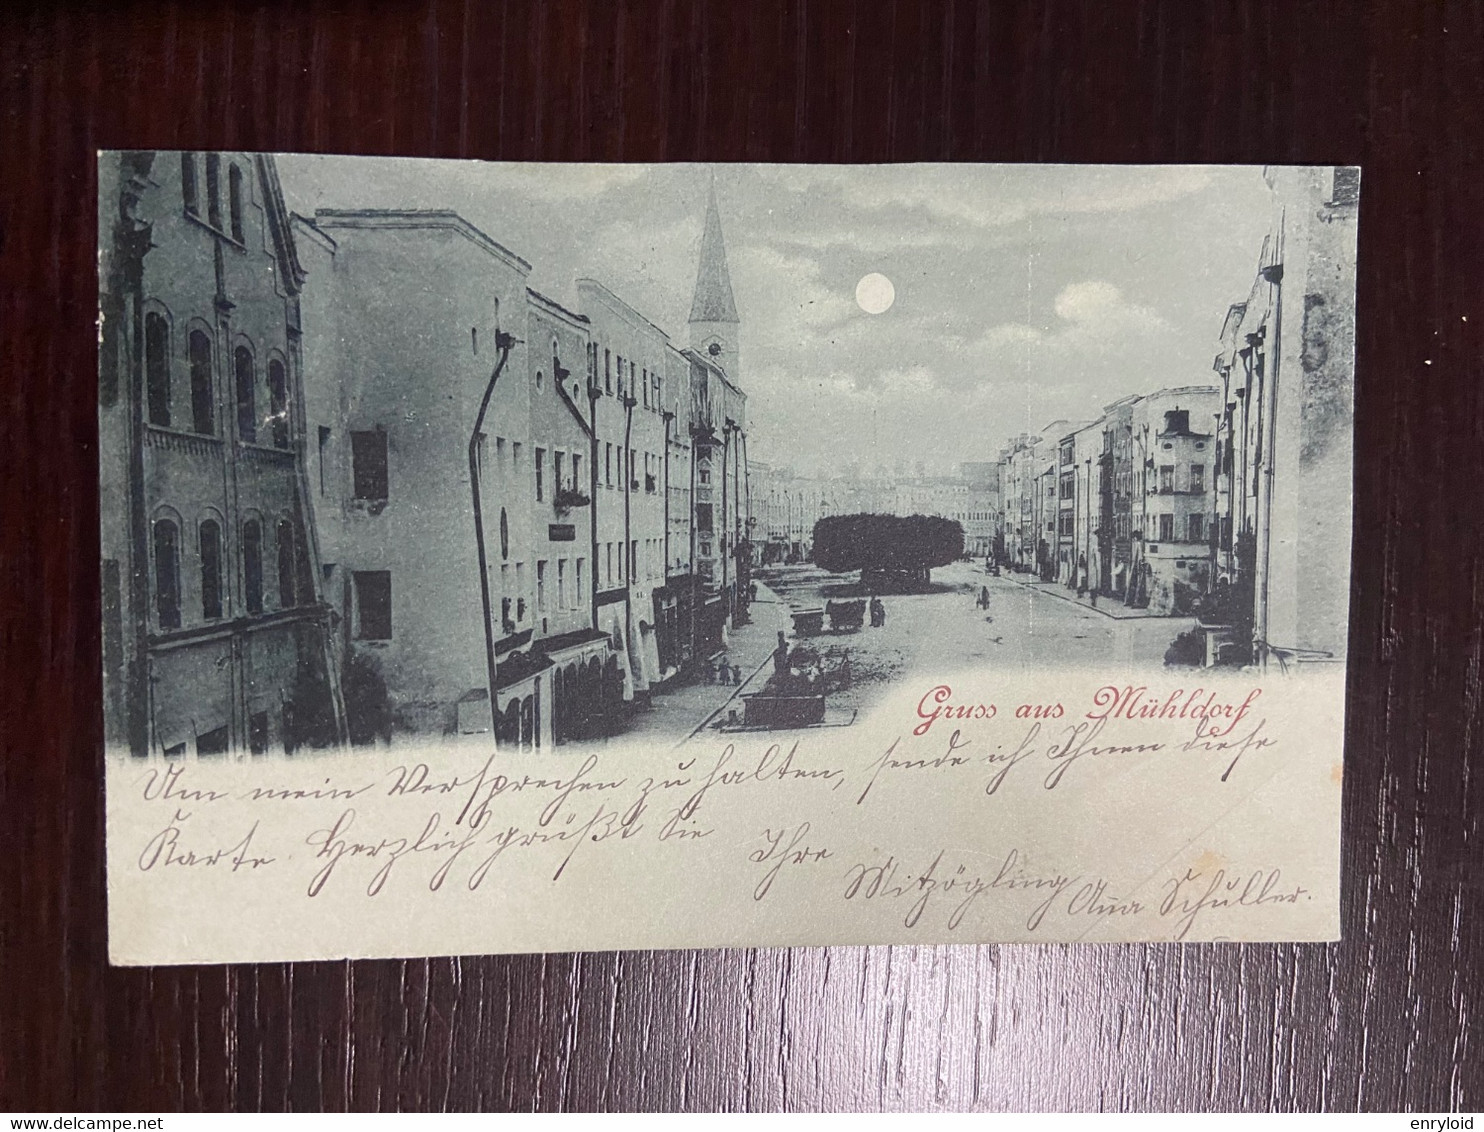 Gruss aus Mühldorf
Um mein Versprechen zu halten, sende ich Ihnen diese
Karte. Herzlich grüßt Sie
Ihre
Mitzögling Anna Schuller.
delcampe.net
enryloid